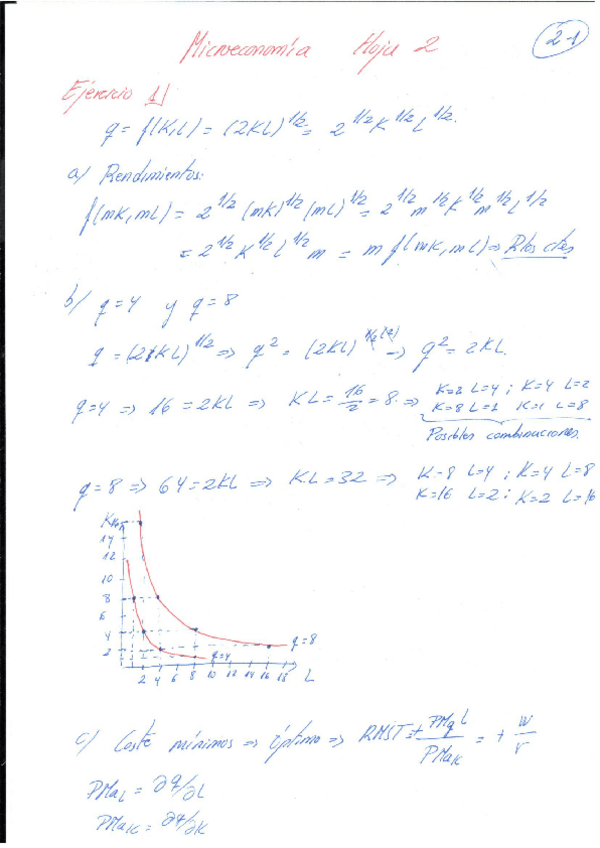 Microeconomía Hoja 2
2-1
Ejercicio 1)
q = f(K,L) = (2KL)^1/2 = 2^1/2 K^1/2 L^1/2.
a) Rendimientos:
f(mK, mL) = 2^1/2 (mK)^1/2 (mL)^1/2 = 2^1/2 m^1/2 K^1/2 m^1/2 L^1/2
= 2^1/2 K^1/2 L^1/2 m = m f(mK, mL) => Rtos ctes
b) q=4 y q=8
q = (2KL)^1/2 => q^2 = (2KL)^1/2(2) => q^2 = 2KL.
q=4 => 16 = 2KL => KL = 16/2 = 8. => K=2 L=4 ; K=4 L=2
K=8 L=1 K=1 L=8
Posibles combinaciones.
q=8 => 64=2KL => KL=32 => K=8 L=4 ; K=4 L=8
K=16 L=2 ; K=2 L=16
K
16
14
12
10
8
6
4
2
q=8
q=4
2 4 6 8 10 12 14 16 18 L
c) Coste mínimos => óptimo => RMST = + PMaL / PMaK = + w/r
PMaL = ∂q/∂L
PMaK = ∂q/∂K